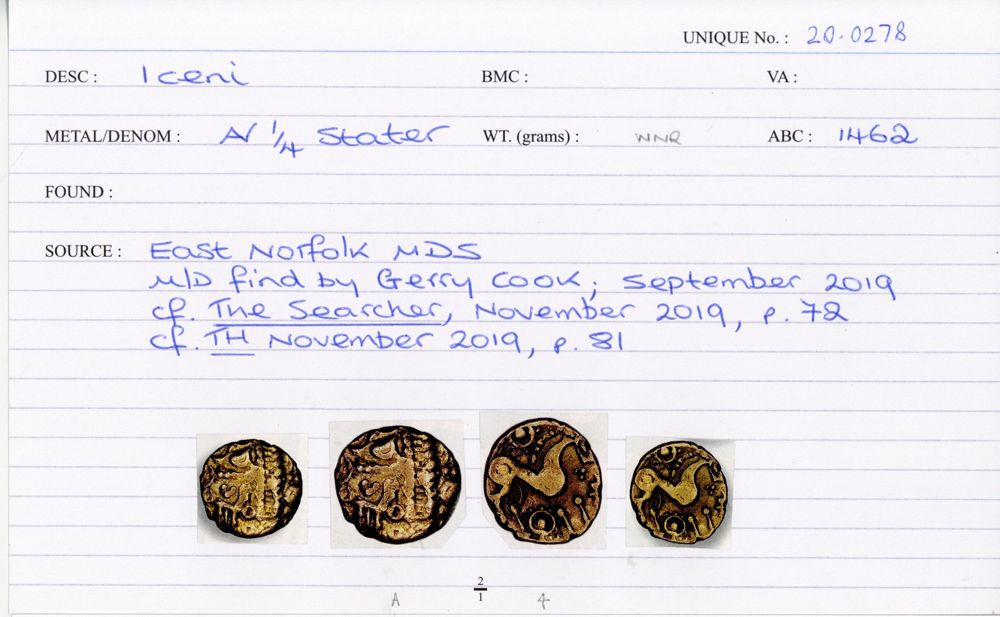 UNIQUE No. : 20.0278
DESC : Iceni BMC : VA :
METAL/DENOM : AV 1/4 Stater WT. (grams) : WNR ABC : 1462
FOUND :
SOURCE : East Norfolk MDS
M/D find by Gerry Cook; September 2019
cf. The Searcher, November 2019, p. 72
cf. TH November 2019, p. 81
A 2/1 4